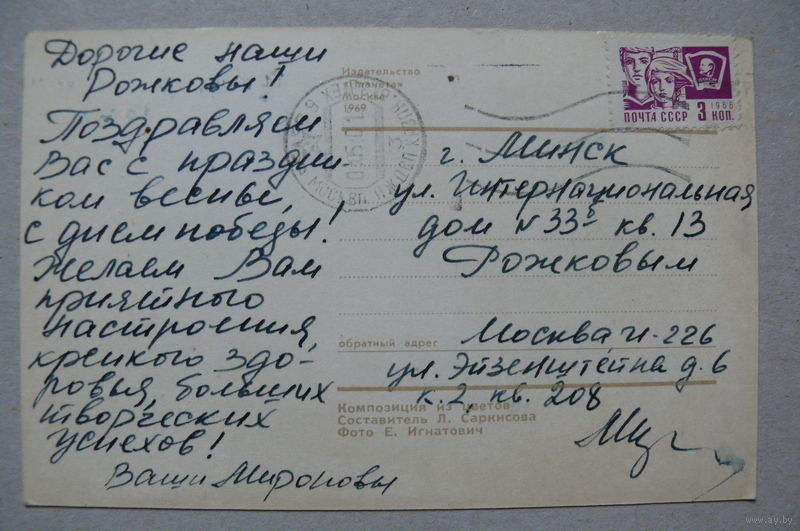 Дорогие наши
Рожковы!
Поздравляем
Вас с праздни-
ком весны,
с днем победы!
Желаем Вам
приятного
настроения,
крепкого здо-
ровья, больших
творческих
успехов!
Ваши Мироновы
Издательство
«Планета»
Москва
1969
ПОЧТА СССР
1966
3 КОП.
г. Минск
ул. Интернациональная
дом № 33 кв. 13
Рожковым
обратный адрес
Москва И-226
ул. Эйзенштейна д. 6
к. 2, кв. 208
Композиция из цветов
Составитель Л. Саркисова
Фото Е. Игнатович
www.ay.by